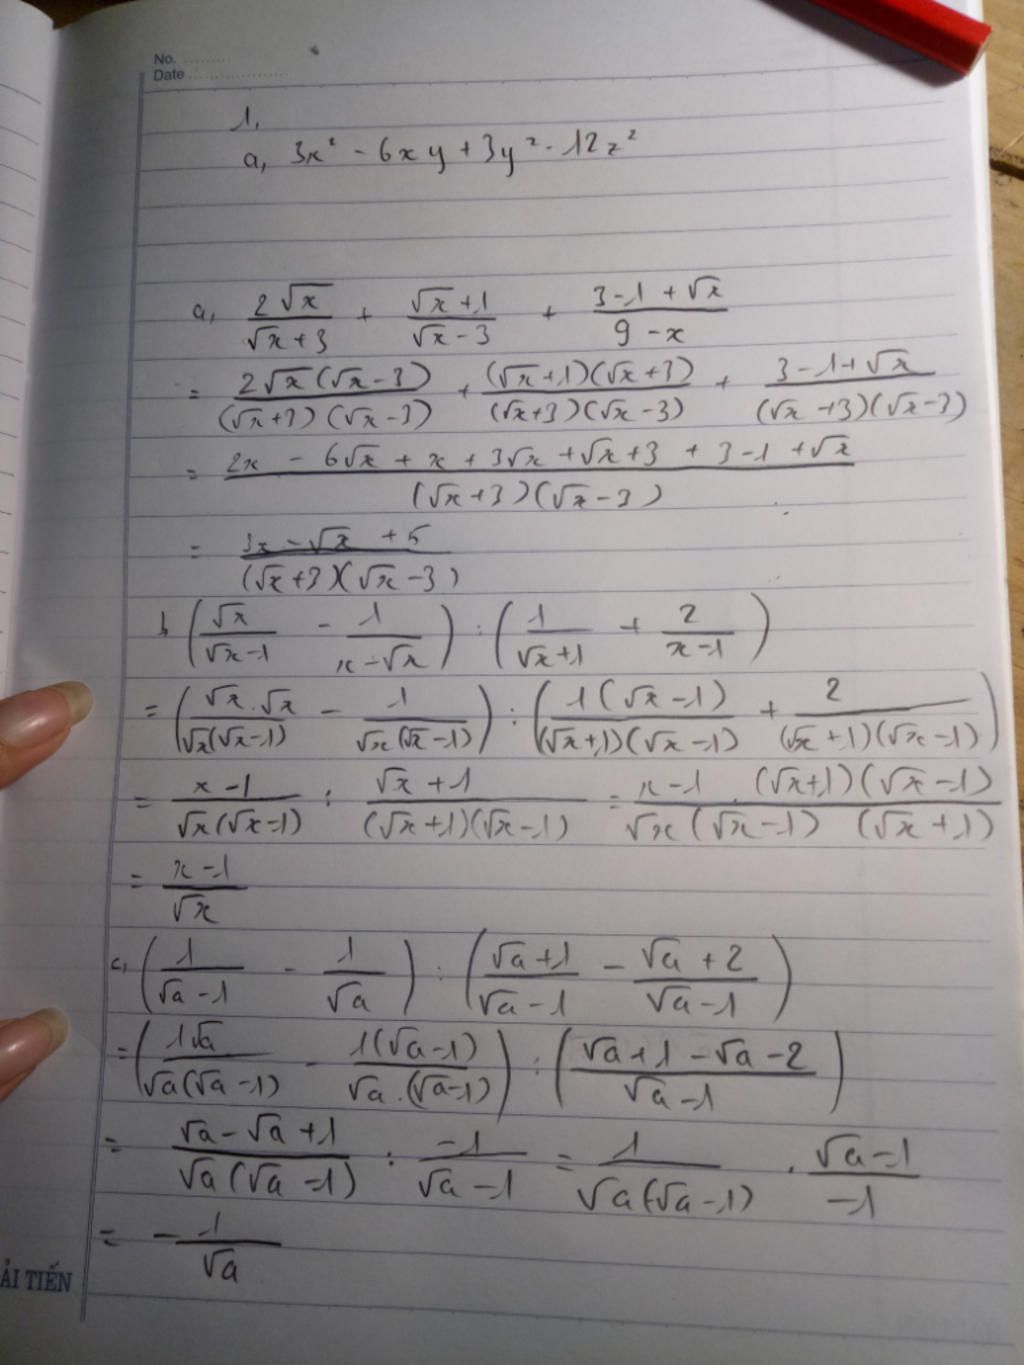 No. ..........
Date ....................
1,
a, 3x² - 6xy + 3y² - 12z²
a, 2√x/(√x+3) + (√x+1)/(√x-3) + (3-1+√x)/(9-x)
= 2√x(√x-3)/((√x+3)(√x-3)) + (√x+1)(√x+3)/((√x+3)(√x-3)) + (3-1+√x)/((√x+3)(√x-3))
= (2x - 6√x + x + 3√x + √x + 3 + 3-1 + √x)/((√x+3)(√x-3))
= (3x - √x + 5)/((√x+3)(√x-3))
b, (√x/(√x-1) - 1/(x-√x)) : (1/(√x+1) + 2/(x-1))
= (√x.√x/(√x(√x-1)) - 1/(√x(√x-1))) : (1(√x-1)/((√x+1)(√x-1)) + 2/((√x+1)(√x-1)))
= (x-1)/(√x(√x-1)) : (√x+1)/((√x+1)(√x-1)) = (x-1)/(√x(√x-1)) . (√x+1)(√x-1)/(√x+1)
= (x-1)/√x
c, (1/(√a-1) - 1/√a) : ((√a+1)/(√a-1) - (√a+2)/(√a-1))
= (1√a/(√a(√a-1)) - 1(√a-1)/(√a.(√a-1))) : ((√a+1-√a-2)/(√a-1))
= (√a-√a+1)/(√a(√a-1)) : -1/(√a-1) = 1/(√a(√a-1)) . (√a-1)/-1
= -1/√a
ẢI TIẾN